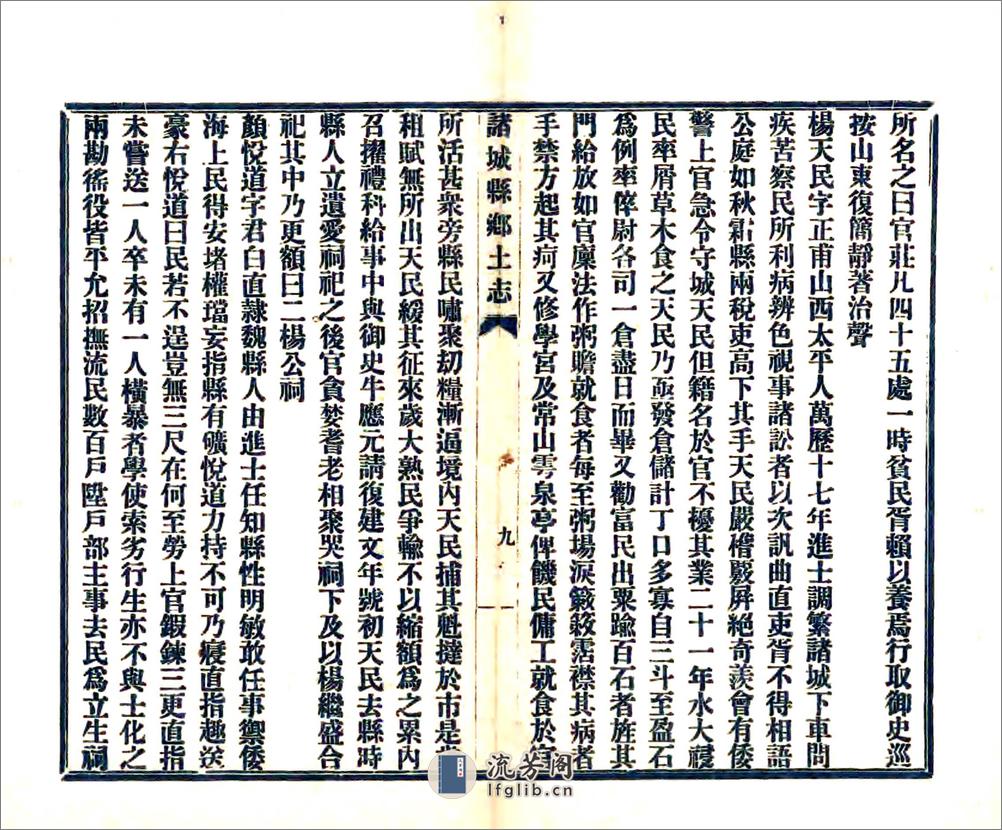 所名之曰官莊凡四十五處一時貧民胥賴以養焉行取御史巡
按山東復簡靜著治聲
楊天民字正甫山西太平人萬歷十七年進士調繁諸城下車問
疾苦察民所利病辨色視事諸訟者以次訊曲直吏胥不得相語
公庭如秋霜縣兩稅吏高下其手天民嚴稽覈屏絕奇羨會有倭
警上官急令守城天民但籍名於官不擾其業二十一年水大祲
民率屑草木食之天民乃亟發倉儲計丁口多寡自三斗至盈石
爲例率倅尉各司一倉盡日而畢又勸富民出粟踰百石者旌其
門給放如官廩法作粥贍就食者每至粥場淚簌簌霑襟其病者
手禁方起其疴又修學宮及常山雩泉亭俾饑民傭工就食於官
諸城縣鄉土志
九
所活甚衆旁縣民嘯聚刼糧漸逼境內天民捕其魁撻於市是
租賦無所出天民緩其征來歲大熟民爭輸不以縮額爲之累內
召擢禮科給事中與御史牛應元請復建文年號初天民去縣時
縣人立遺愛祠祀之後官貪婪耆老相聚哭祠下及以楊繼盛合
祀其中乃更額曰二楊公祠
顏悅道字君白直隸魏縣人由進士任知縣性明敏敢任事禦倭
海上民得安堵權璫妄指縣有礦悅道力持不可乃寢直指趣送
豪右悅道曰民若不逞豈無三尺在何至勞上官鍜鍊三更直指
未嘗送一人卒未有一人橫暴者學使索劣行生亦不與士化之
兩勘徭役皆平允招撫流民數百戶陞戶部主事去民爲立生祠
流芳阁
lfglib.cn